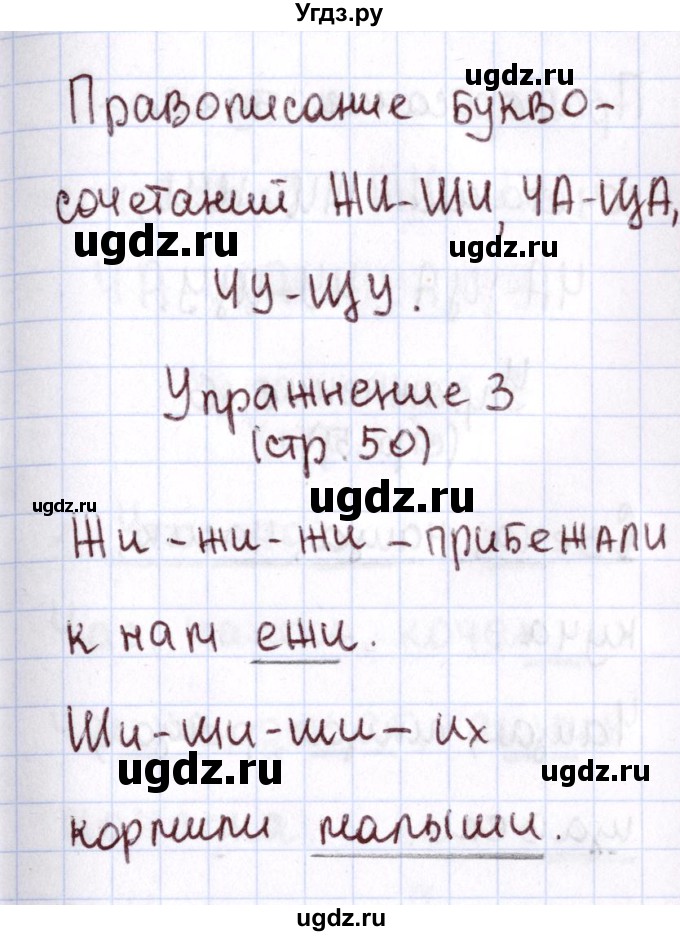 Угдз.ру
ugdz.ru
Правописание букво-
сочетаний ЖИ-ШИ, ЧА-ЩА,
ugdz.ru
ugdz.ru
ЧУ-ЩУ.
Упражнение 3
(стр. 50)
ugdz.ru
ugdz.ru
Жи - жи - жи - прибежали
к нам ежи.
Ши - ши - ши - их
ugdz.ru
ugdz.ru
кормили малыши.
ugdz.ru